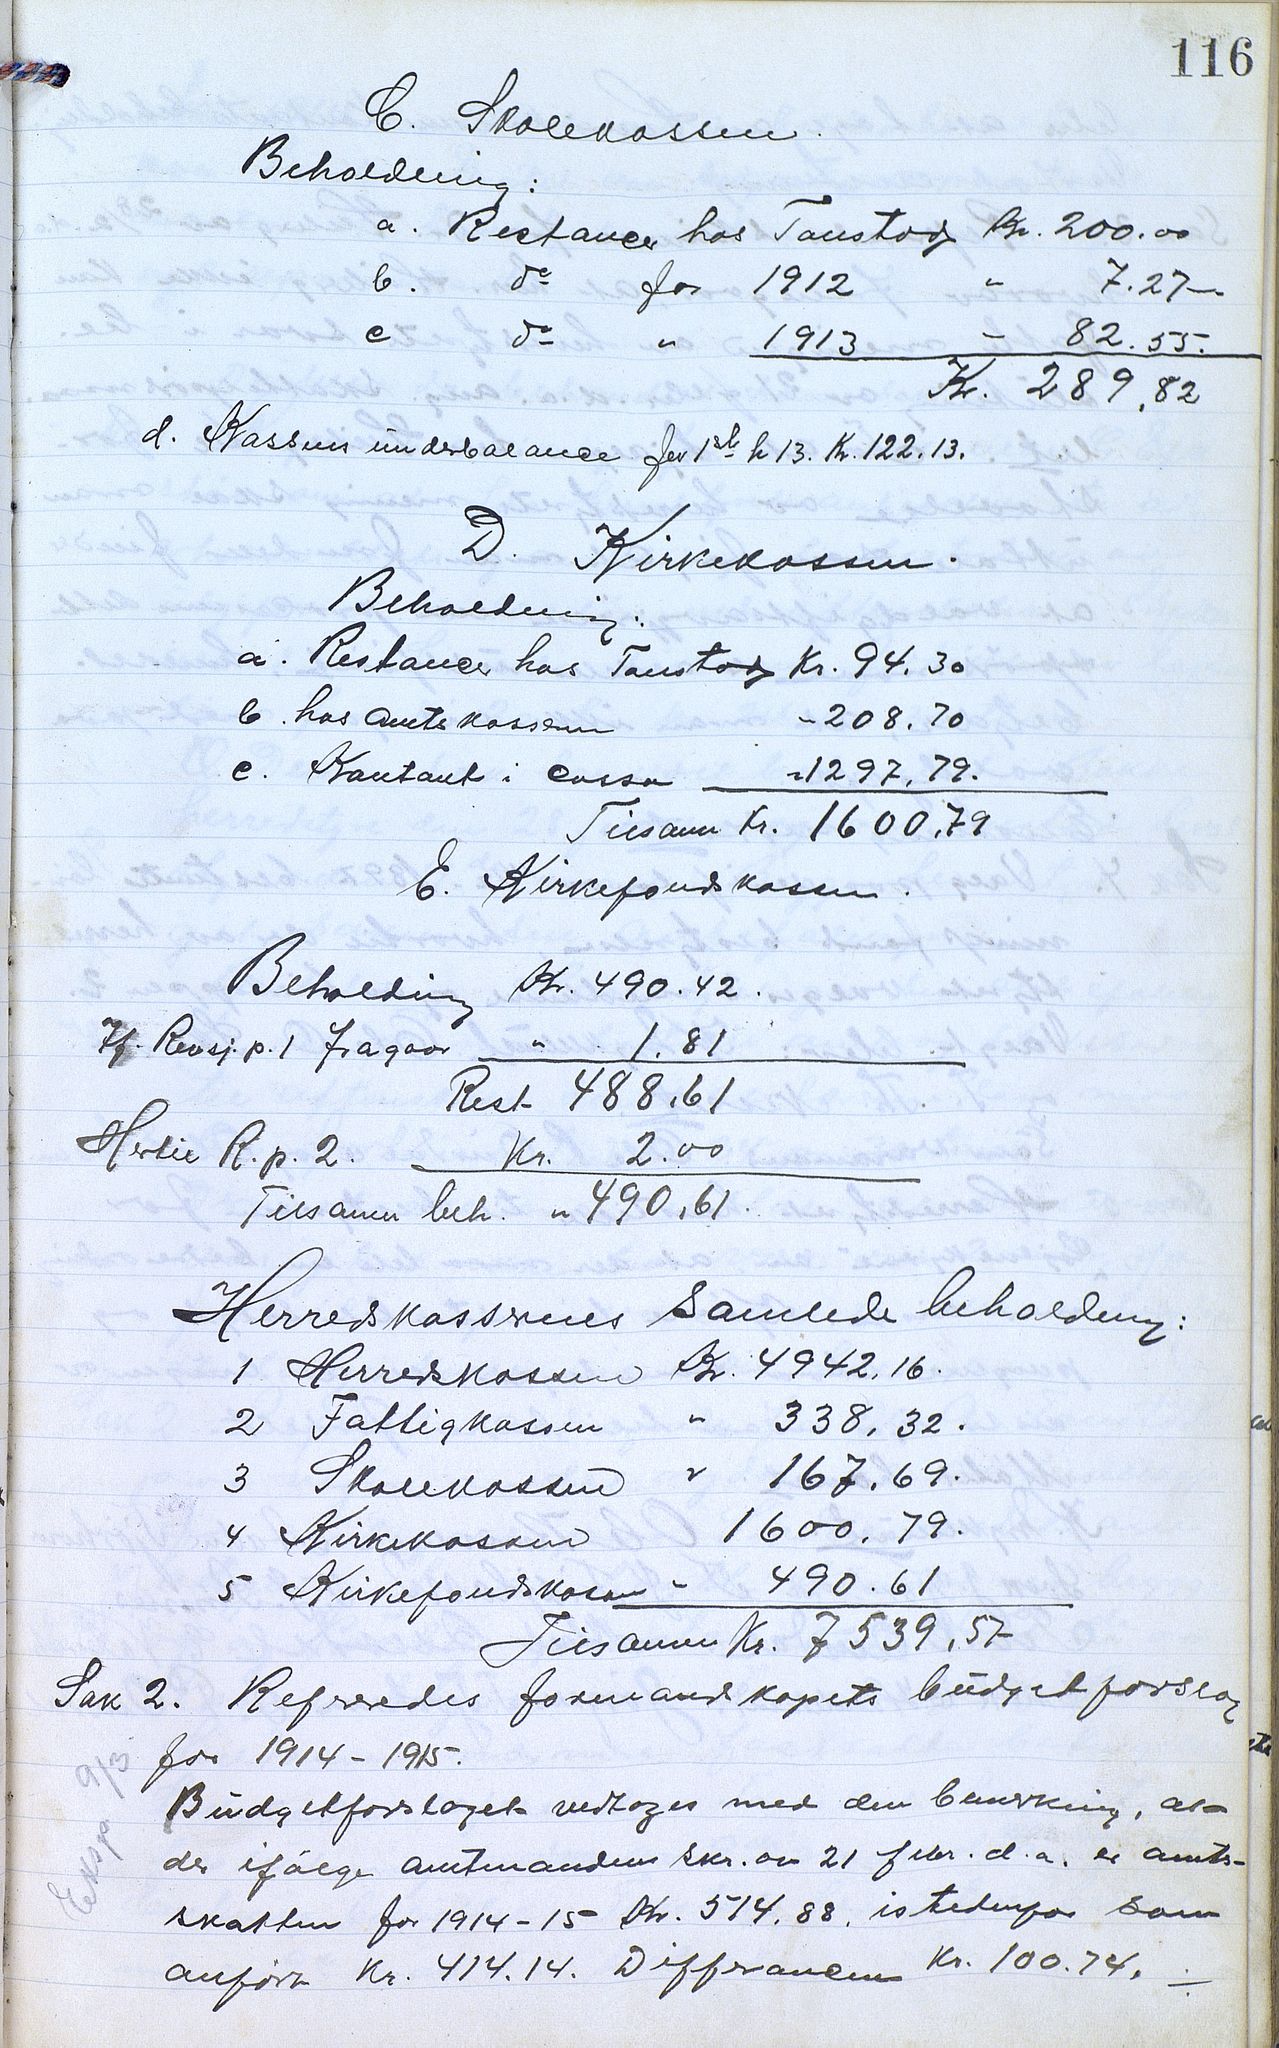 116
C. Skolekassen.
Beholdning:
a. Restancer hos Taustog Kr. 200.00
b. do for 1912 " 7.27
c do " 1913 " 82.55.
Kr. 289,82
d. Kassens underbalance for 1ste h 13. Kr. 122.13.
D. Kirkekassen.
Beholdning:
a. Restancer hos Taustog Kr. 94.30
b. hos amtskassen " 208.70
c. Kontant i cassa " 1297,79.
Tilsamm Kr. 1600,79
E. Kirkefondskassen.
Beholdning Kr. 490.42.
Ifl. Revsj. p. 1 fragaar " 1.81
Rest 488,61
Hertil R. p. 2. Kr. 2.00
Tilsamm beh. " 490,61.
Herredskassernes samlede beholdning:
1 Herredskassen Kr. 4942,16.
2 Fattigkassen " 338,32.
3 Skolekassen " 167.69.
4 Kirkekassen 1600.79.
5 Kirkefondskassen " 490.61
Tilsammen Kr. 7539,57
Sak 2. Refereredes formandskapets budgetforslag
for 1914-1915.
Budgetforslaget vedtoges med den bemerkning, at
der ifølge amtmandens skr. av 21 febr. d.a. er amts-
skatten for 1914-15 Kr. 514,88. istedenfor som
anført Kr. 414.14. Differancen Kr. 100.74. ÷
Eksp 9/3